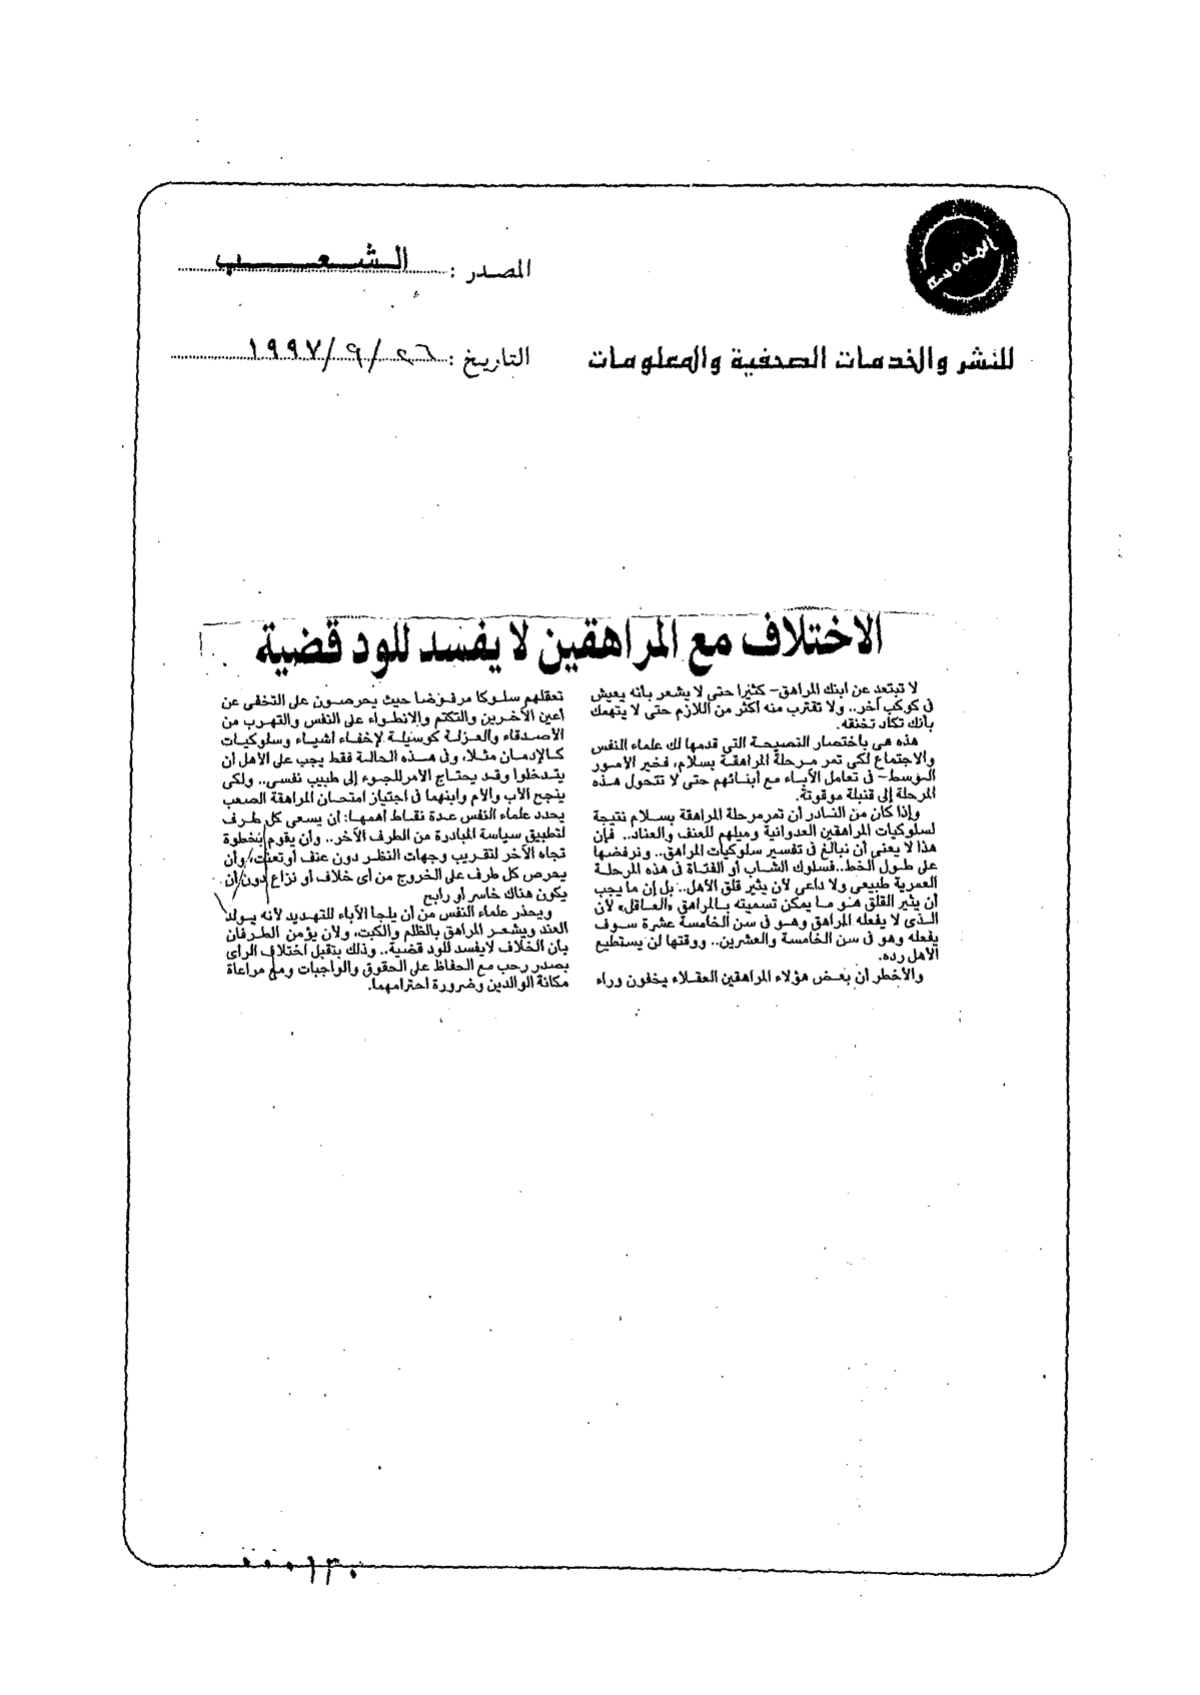 المصدر : الشعب
التاريخ : ٢٦/٩/١٩٩٧
للنشر والخدمات الصحفية والمعلومات
الاختلاف مع المراهقين لا يفسد للود قضية
لا تبتعد عن ابنك المراهق- كثيرا حتى لا يشعر بانه يعيش
فى كوكب آخر.. ولا تقترب منه اكثر من اللازم حتى لا يتهمك
بأنك تكاد تخنقه.
هذه هى باختصار النصيحة التى قدمها لك علماء النفس
والاجتماع لكى تمر مرحلة المراهقة بسلام، فخير الامور
الوسط- فى تعامل الآباء مع أبنائهم حتى لا تتحول هذه
المرحلة إلى قنبلة موقوتة.
وإذا كان من النادر أن تمر مرحلة المراهقة بسلام نتيجة
لسلوكيات المراهقين العدوانية وميلهم للعنف والعناد.. فإن
هذا لا يعنى أن نبالغ فى تفسير سلوكيات المراهق.. ونرفضها
على طول الخط..فسلوك الشاب أو الفتاة فى هذه المرحلة
العمرية طبيعى ولا داعى لأن يثير قلق الأهل.. بل إن ما يجب
أن يثير القلق هو ما يمكن تسميته بالمراهق «العاقل» لأن
الذى لا يفعله المراهق وهو فى سن الخامسة عشرة سوف
يفعله وهو فى سن الخامسة والعشرين.. ووقتها لن يستطيع
الأهل رده.
والأخطر أن بعض هؤلاء المراهقين العقلاء يخفون وراء
تعقلهم سلوكا مرفوضا حيث يحرصون على التخفى عن
أعين الآخرين والتكتم والانطواء على النفس والتهرب من
الأصدقاء والعزلة كوسيلة لإخفاء اشياء وسلوكيات
كالإدمان مثلا، وفى هذه الحالة فقط يجب على الأهل أن
يتدخلوا وقد يحتاج الامر للجوء إلى طبيب نفسى.. ولكى
ينجح الأب والأم وابنهما فى اجتياز امتحان المراهقة الصعب
يحدد علماء النفس عدة نقاط اهمها: أن يسعى كل طرف
لتطبيق سياسة المبادرة من الطرف الآخر.. وأن يقوم بخطوة
تجاه الآخر لتقريب وجهات النظر دون عنف أو تعنت، وأن
يحرص كل طرف على الخروج من أى خلاف أو نزاع دون أن
يكون هناك خاسر أو رابح
ويحذر علماء النفس من أن يلجأ الآباء للتهديد لأنه يولد
العند ويشعر المراهق بالظلم والكبت، ولأن يؤمن الطرفان
بأن الخلاف لايفسد للود قضية.. وذلك بتقبل اختلاف الرأى
بصدر رحب مع الحفاظ على الحقوق والواجبات ومع مراعاة
مكانة الوالدين وضرورة احترامهما.